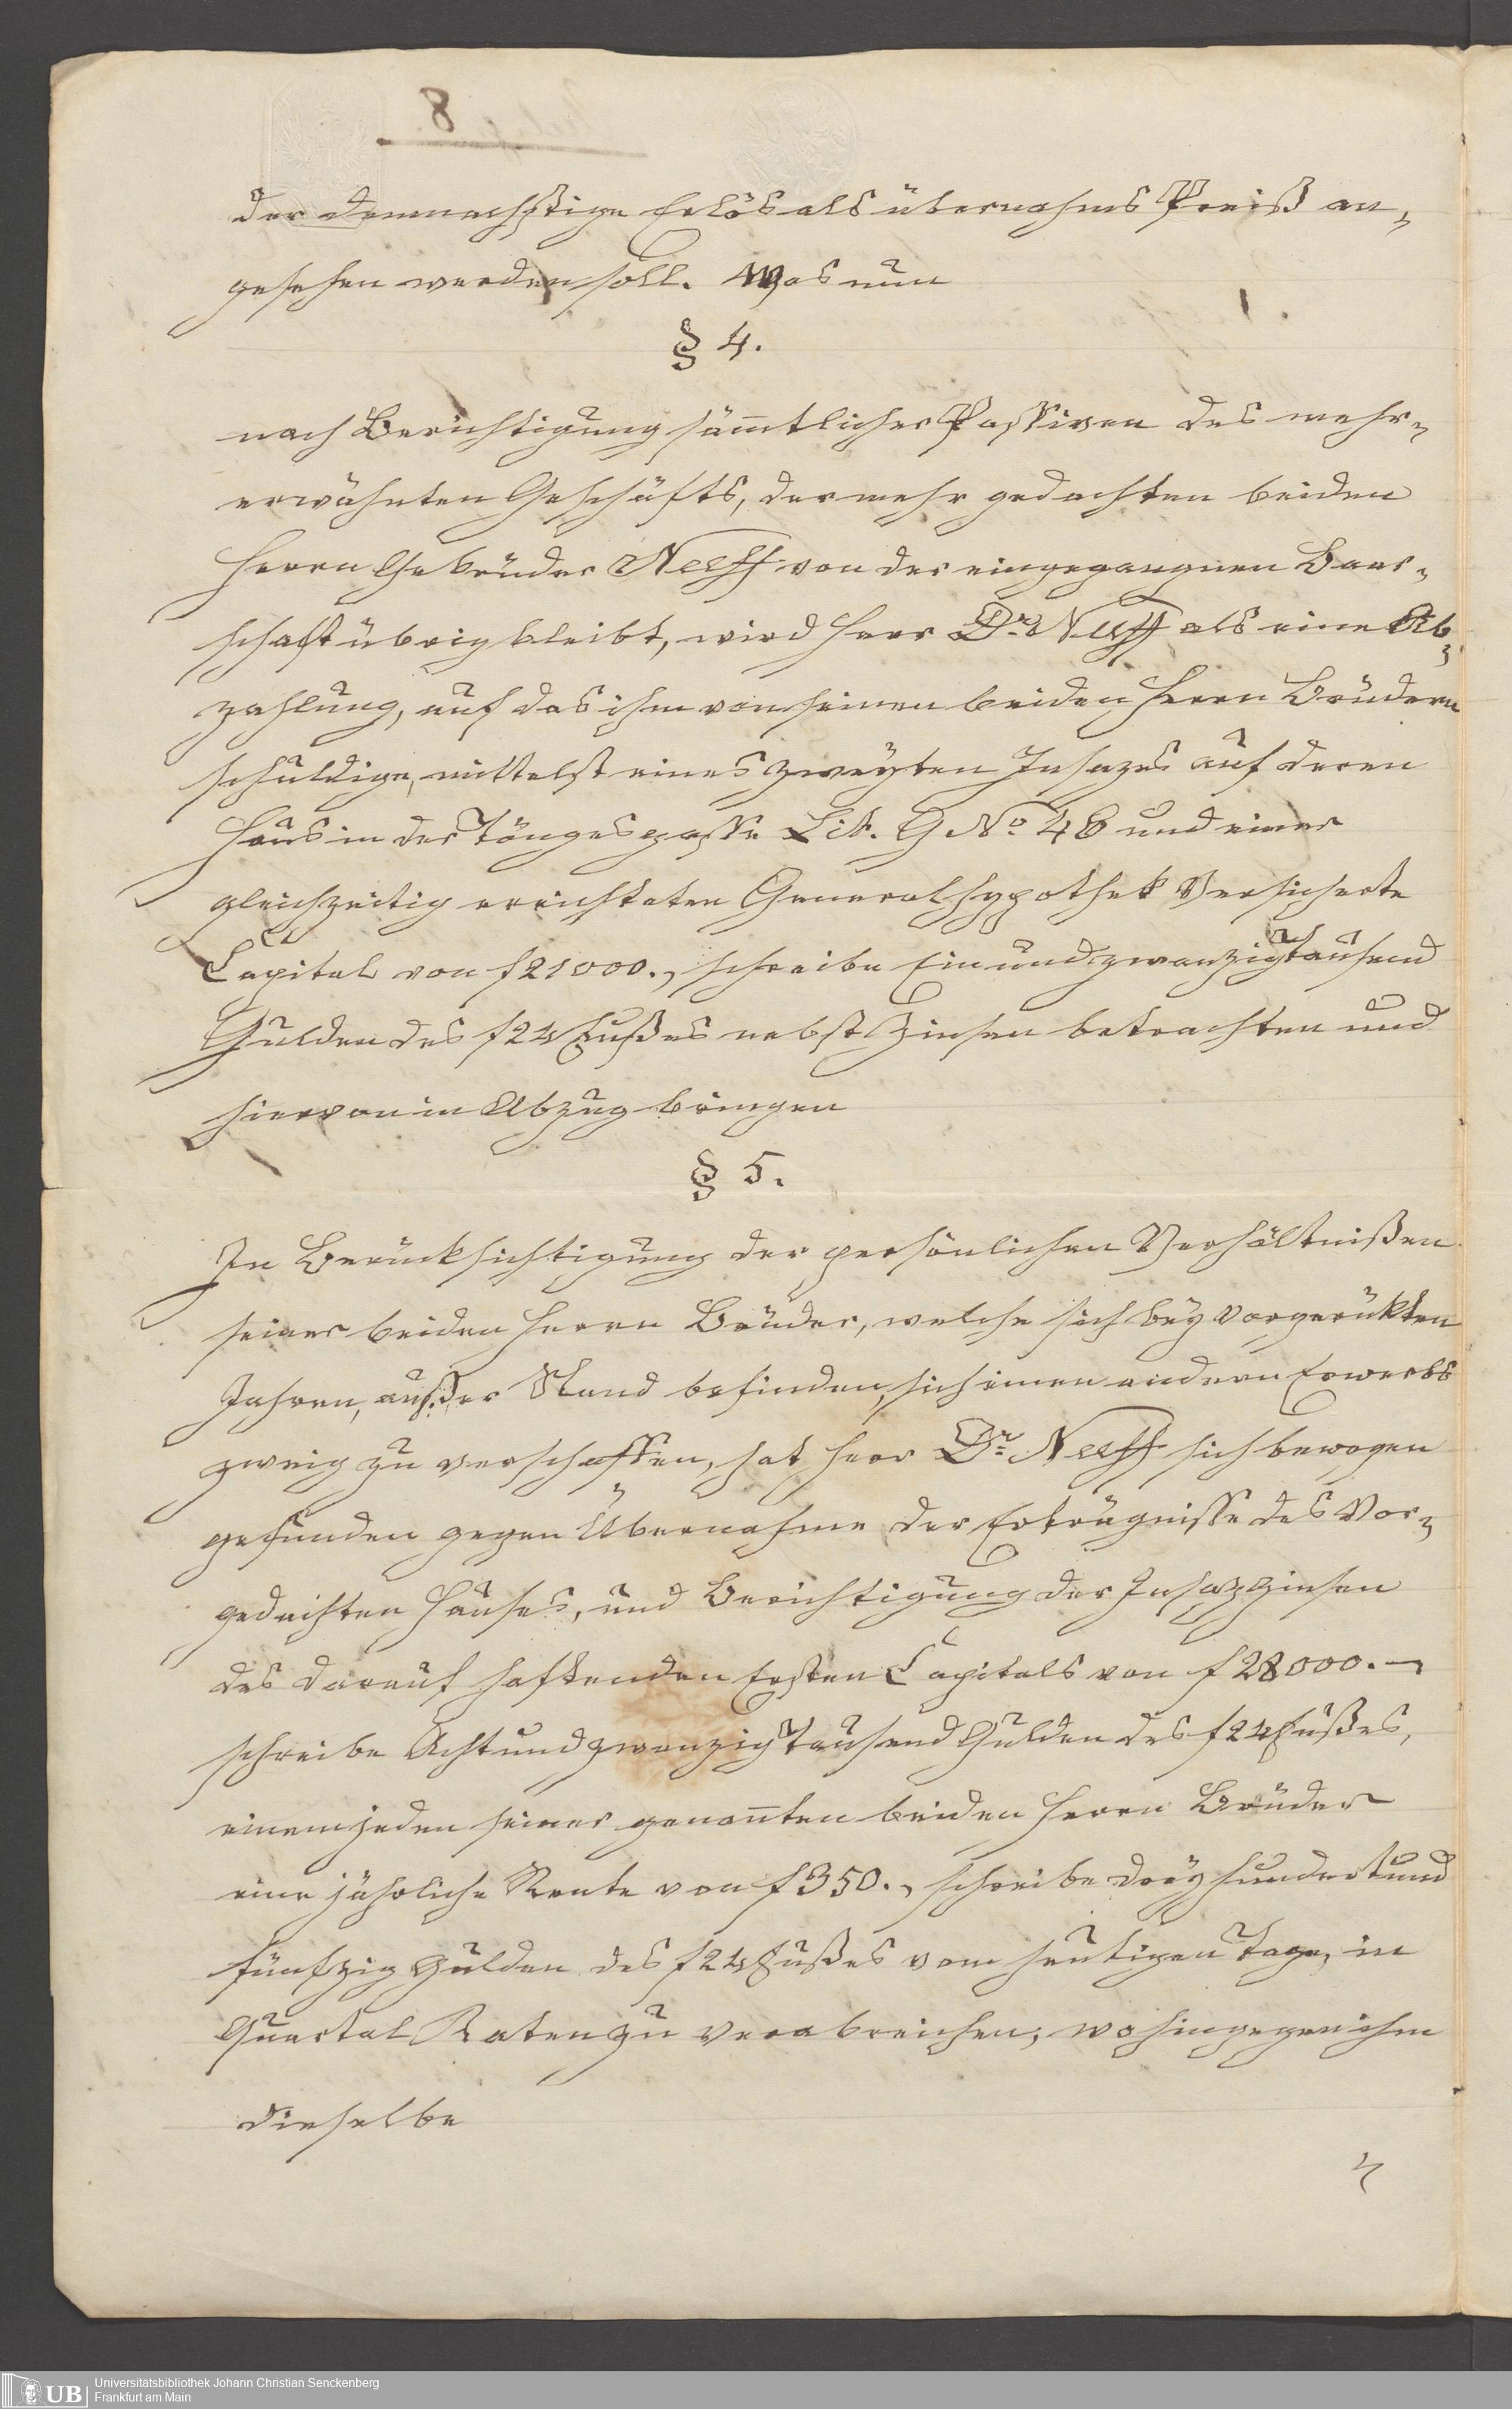 8
der demnachstige Erlös als übernahms Preiß an-
gesehen werden soll. Was nun
§ 4.
nach Berichtigung säm̄tlicher Passiven des mehr-
erwähnten Geschäfts, der mehr gedachten beiden
Herrn Gebrüder Neeff von der eingegangnen Baar-
schaft übrig bleibt, wird Herr Dr. Neeff als eine Ab-
zahlung, auf das ihm von seinen beiden Herrn Brüdern
schuldige, mittelst eines zweyten Insazes auf deren
Haus in der Töngesgasse Lit. G No. 46 und einer
gleichzeitig errichteten Generalhypothek Versicherte
Capital von f 21000., schreibe Einundzwanzigtausend
Gulden des f 24 Fußes nebst Zinsen betrachten und
hiervon in Abzug bringen
§ 5.
In Berücksichtigung der persönlichen Verhältnißen
seiner beiden Herrn Brüder, welche sich bey vorgerükten
Jahren, außer Stand befinden, sich einen andern Erwerbs
zweig zu verschaffen, hat Herr Dr. Neeff sich bewogen
gefunden gegen Übernahme der Erträgnisse des Vor-
gedachten Hauses, und Berichtigung der Insazzinsen
des darauf haftenden Ersten Capitals von f 28000.-
schreibe Achtundzwanzig Tausend Gulden des f 24 Fußes,
einem jeden seiner genan̄ten beiden Herrn Brüder
eine jährliche Rente von f 350., schreibe dreyhundertund
fünfzig Gulden des f 24 Fußes vom heutigen Tage, in
Quartal Raten zu verabreichen; wohingegen ihm
dieselbe
UB
Universitätsbibliothek Johann Christian Senckenberg
Frankfurt am Main